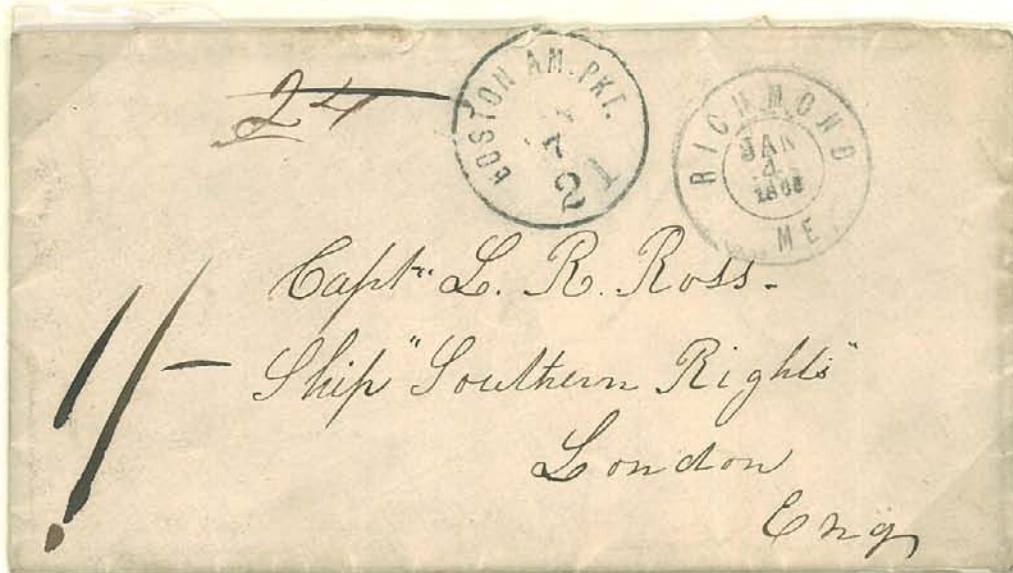 24
BOSTON AM. PKT.
7
21
RICHMOND
JAN
4
ME.
1/-
Capt" L. R. Ross-
Ship "Southern Rights"
London
Eng